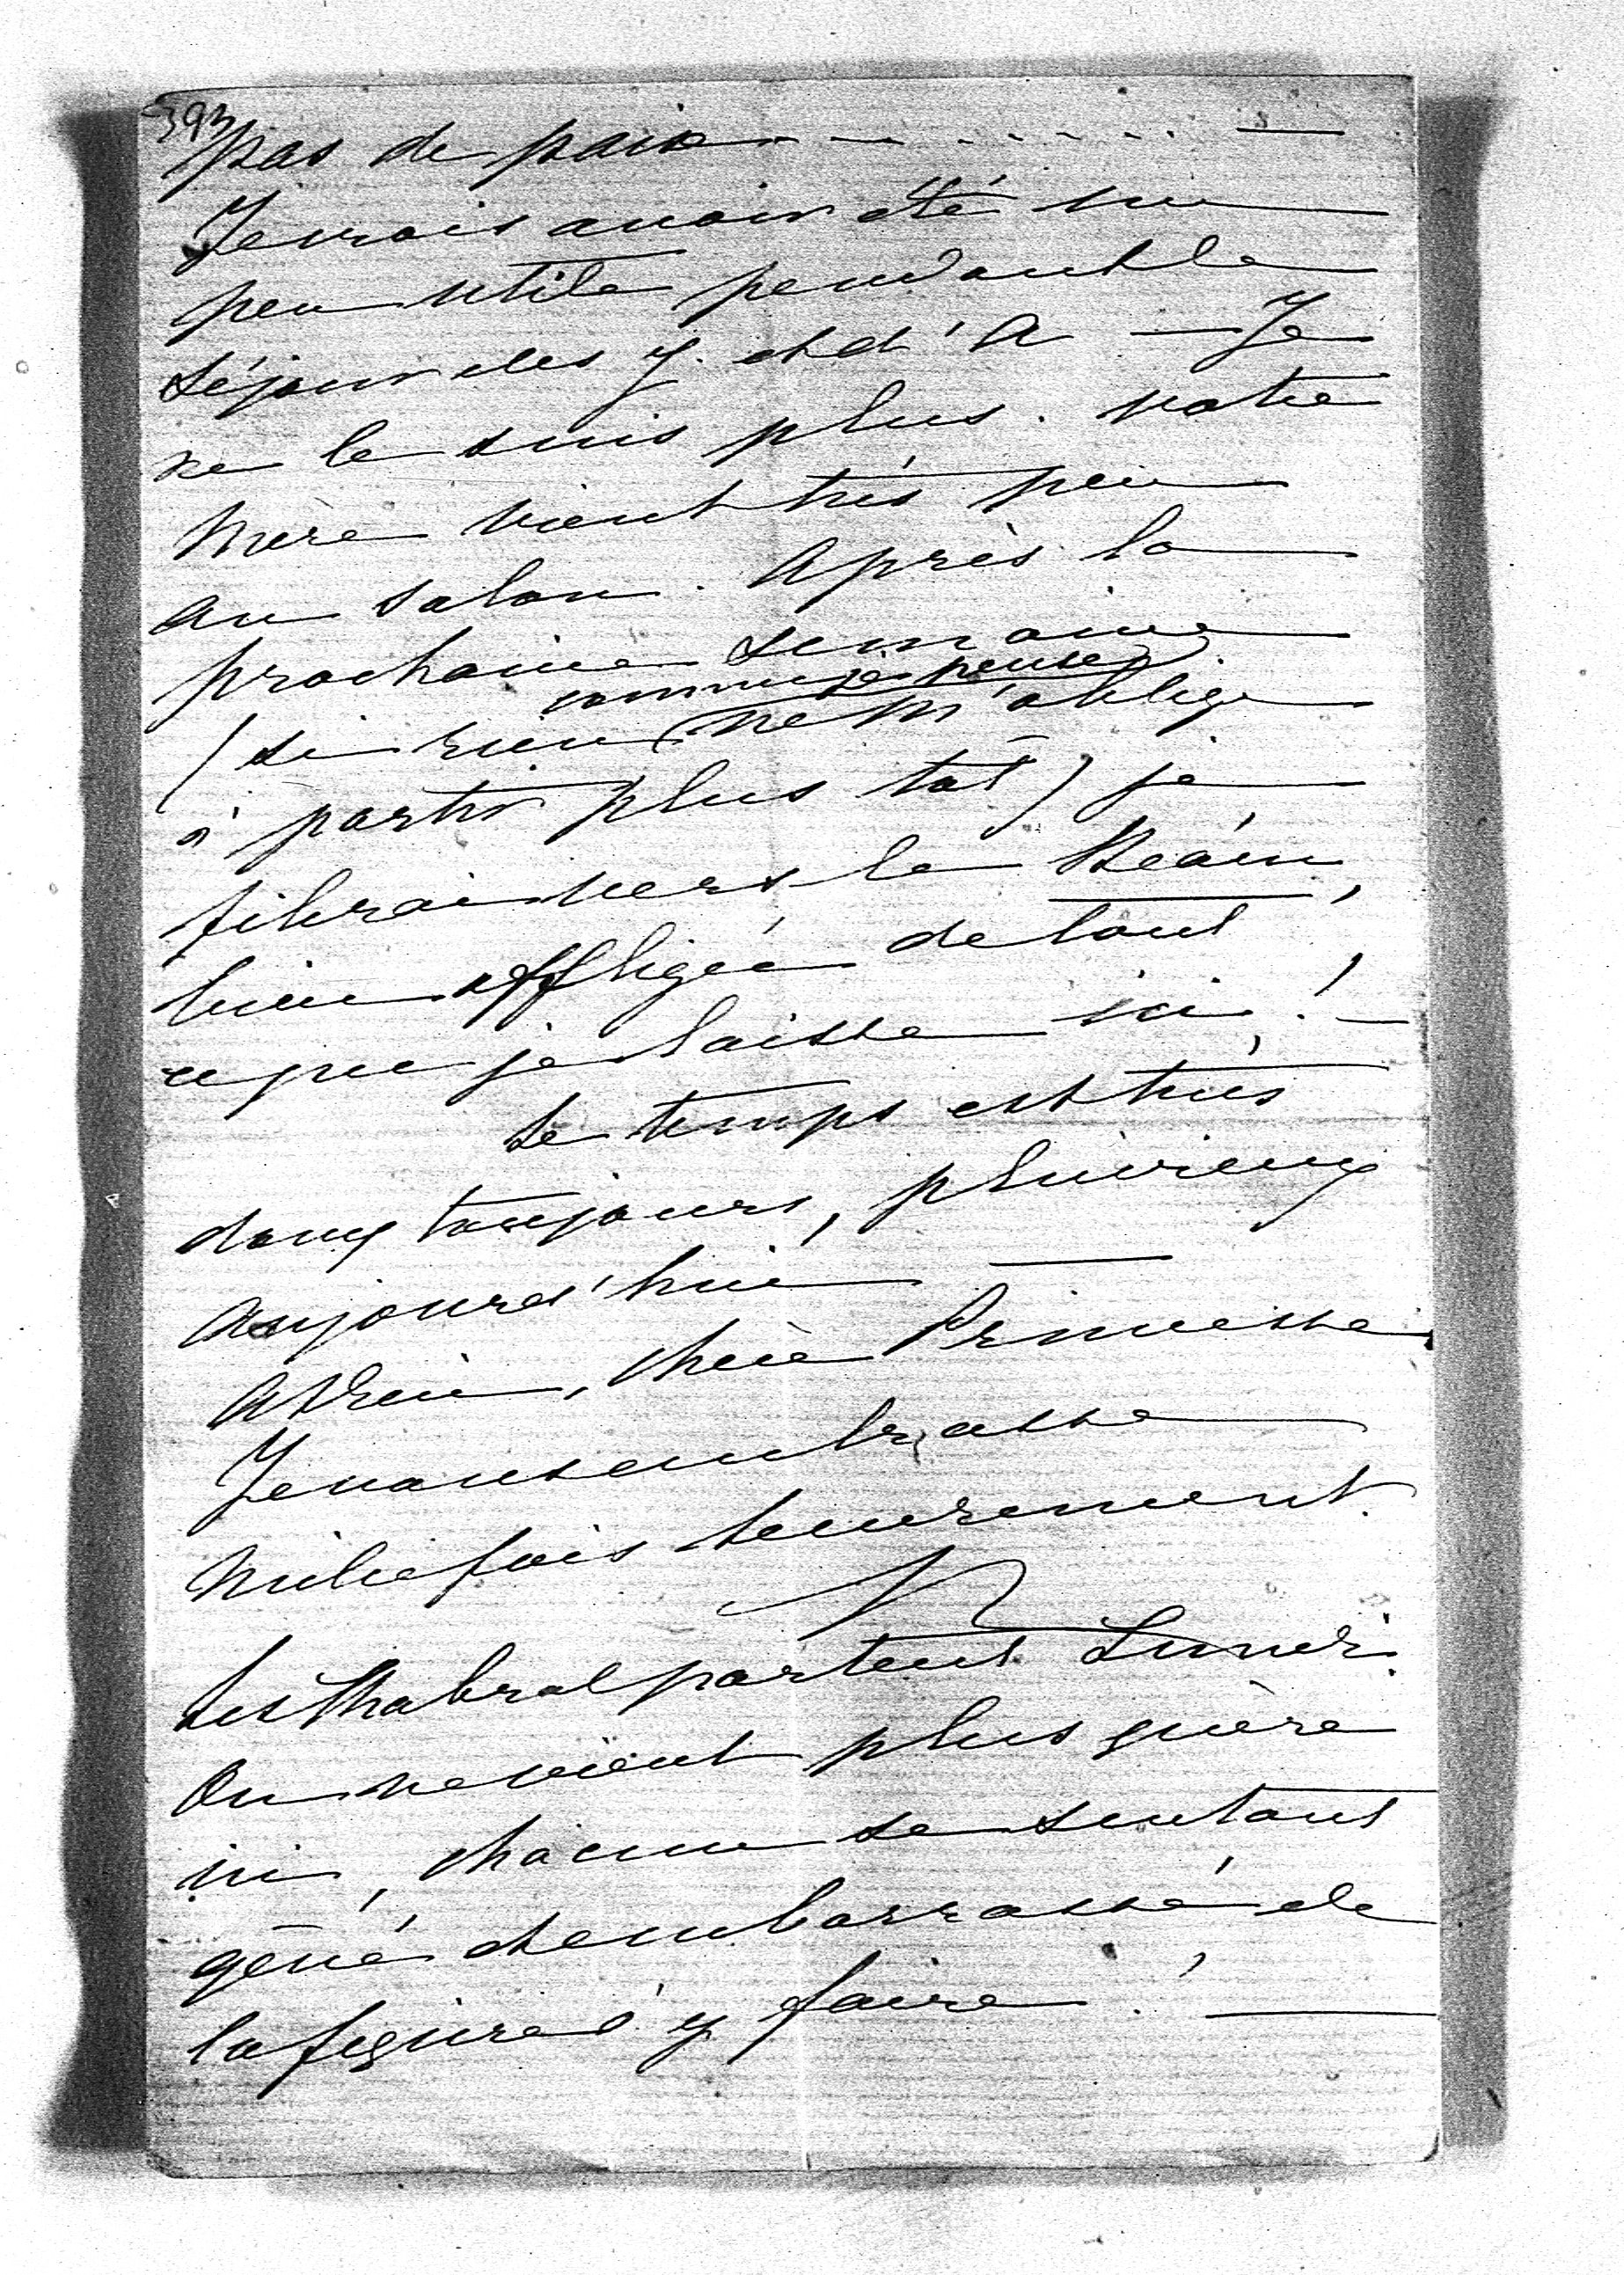 393
pas de paix — . . . . . . —
Je crois avoir été un
peu utile pendant le
séjour des J. et d'A — Je
ne le suis plus. votre
mère vient très peu
au salon. Après la
prochaine semaine
comme je pense
(si rien ne m'oblige
à partir plus tôt) je
filerai vers le
bien affligée de tout
ce que je laisse ici ! —
Le temps est très
doux toujours, pluvieux
aujourd'hui —
Adieu, chère Princesse
Je vous embrasse
mille fois tendrement.
Les Chabrol partent Lundi.
On ne vient plus guère
ici, chacun se sentant
gêné et embarrassé de
la figure à y faire ! —